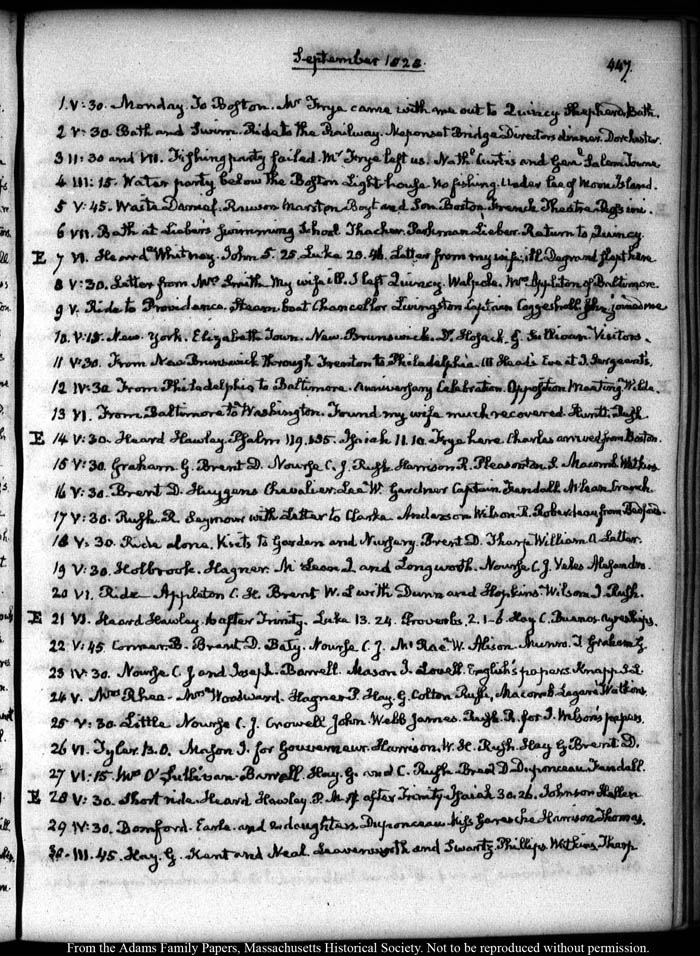 September 1828.
447.
1. V:30. Monday. To Boston. Mr Frye came with me out to Quincy Shepherd. Bath.
2 V:30. Bath and Swim. Ride to the Railway. Neponset Bridge Directors dinner. Dorchester.
3 II:30 and VII. Fishing party failed. Mr Frye left us. Nathl Curtis and Genl Salem Towne
4 III:15. Water party below the Boston Light house no fishing. Under lee of Moon Island.
5 V:45. Waste Marston and Son Boston, French Theatre.
6 VII. Bath at Lieber's swimming School Thacher. Parkman Lieber. Return to Quincy.
E 7 VI. Heard Whitney. John 5. 25. Luke 23. 46. Letter from my wife ill. Degrand slept here
8 V:30. Letter from Mrs Smith. My wife ill. I left Quincy. Walpole. Mrs Appleton of Baltimore
9 V. Ride to Providence. Steam boat Chancellor Livingston Captain Coggeshall joined me
10. V:15. New-York. Elizabeth Town. New Brunswick. Dr Hosack. G. Sullivan Visitors.
11 V:30. From New Brunswick through Trenton to Philadelphia. at Head's Eve at J. Sergeant's.
12 IV:30 From Philadelphia to Baltimore. Anniversary Celebration. Opposition Meeting.
13 VI. From Baltimore to Washington. Found my wife much recovered. Hunt. Rush
E 14 V:30. Heard Hawley. Psalm 119. 135. Isaiah 11. 10. Frye here. Charles arrived from Boston.
15 V:30. Graham G. Brent D. Nourse C. J. Rush. Harrison R. Pleasonton S. Macomb Watkins
16 V:30. Brent D. Huygens Chevalier. Lee W. Gardner Captain Kendall. McLean Cranch
17 V:30. Rush. R. Seymour with Letter to Clarke. Anderson Wilson. R. Roberdeau from Bedford.
18 V:30. Ride alone. Visits to Garden and Nursery. Brent D. Tharp William A. Letter.
19 V:30. Holbrook. Hagner. McLean J. and Longworth. Nourse C. J. Alejandro.
20 VI. Ride Appleton C. H. Brent W. L. with Dunn and Hopkins. Wilson J. Rush.
E 21 VI. Heard Hawley. 16 after Trinity. Luke 13. 24. Proverbs. 2. 1-6. Hay C. Buenos ayres ships.
22 V:45 Conner. B. Brent D. Baty. Nourse C. J. McRae W. Alison. Munro. J. Graham G
23 IV:30. Nourse C. J and Joseph. Barrell. Mason J. Lovell. English's papers Knapp S. L.
24 V. Mrs Rhea. Mrs Woodward. Hagner P. Hay. G. Colton Rush, Macomb. Lagare Watkins.
25 V:30. Little Nourse C. J. Crowell John Webb James. Rush R. for J. Wilson's papers.
26 VI. Tyler. B. O. Mason J. for Gouverneur. Harrison. W. H. Rush. Hay G Brent D.
27 VI:15. Mrs O'Sullivan Barrell. Hay. G. and C. Rush Brent D Duponceau Kendall.
E 28 V:30. Short ride. Heard Hawley P. M. 17 after Trinity. Isaiah 30. 26. Johnson
29 IV:30. Bomford. Earle. and 2 daughters Duponceau Miss Garesche Harrison Thomas.
30. III.45. Hay. G. Kent and Neal. Leavenworth and Swartz Phillips Watkins Tharp
From the Adams Family Papers, Massachusetts Historical Society. Not to be reproduced without permission.